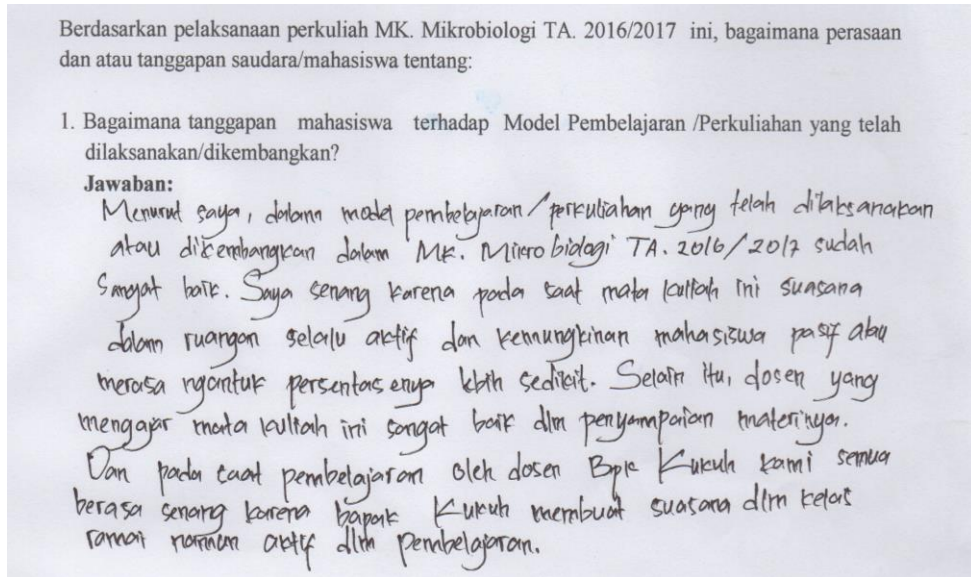 Berdasarkan pelaksanaan perkuliah MK. Mikrobiologi TA. 2016/2017 ini, bagaimana perasaan
dan atau tanggapan saudara/mahasiswa tentang:
1. Bagaimana tanggapan mahasiswa terhadap Model Pembelajaran /Perkuliahan yang telah
dilaksanakan/dikembangkan?
Jawaban:
Menurut saya, dalam model pembelajaran/perkuliahan yang telah dilaksanakan
atau dikembangkan dalam MK. Mikrobiologi TA. 2016/2017 sudah
Sangat baik. Saya senang karena pada saat mata kuliah ini suasana
dalam ruangan selalu aktif dan kemungkinan mahasiswa pasif atau
merasa ngantuk persentasenya lebih sedikit. Selain itu, dosen yang
mengajar mata kuliah ini sangat baik dlm penyampaian materinya.
Dan pada saat pembelajaran oleh dosen Bpk Kukuh kami semua
berasa senang karena bapak Kukuh membuat suasana dlm kelas
ramai namun aktif dlm pembelajaran.